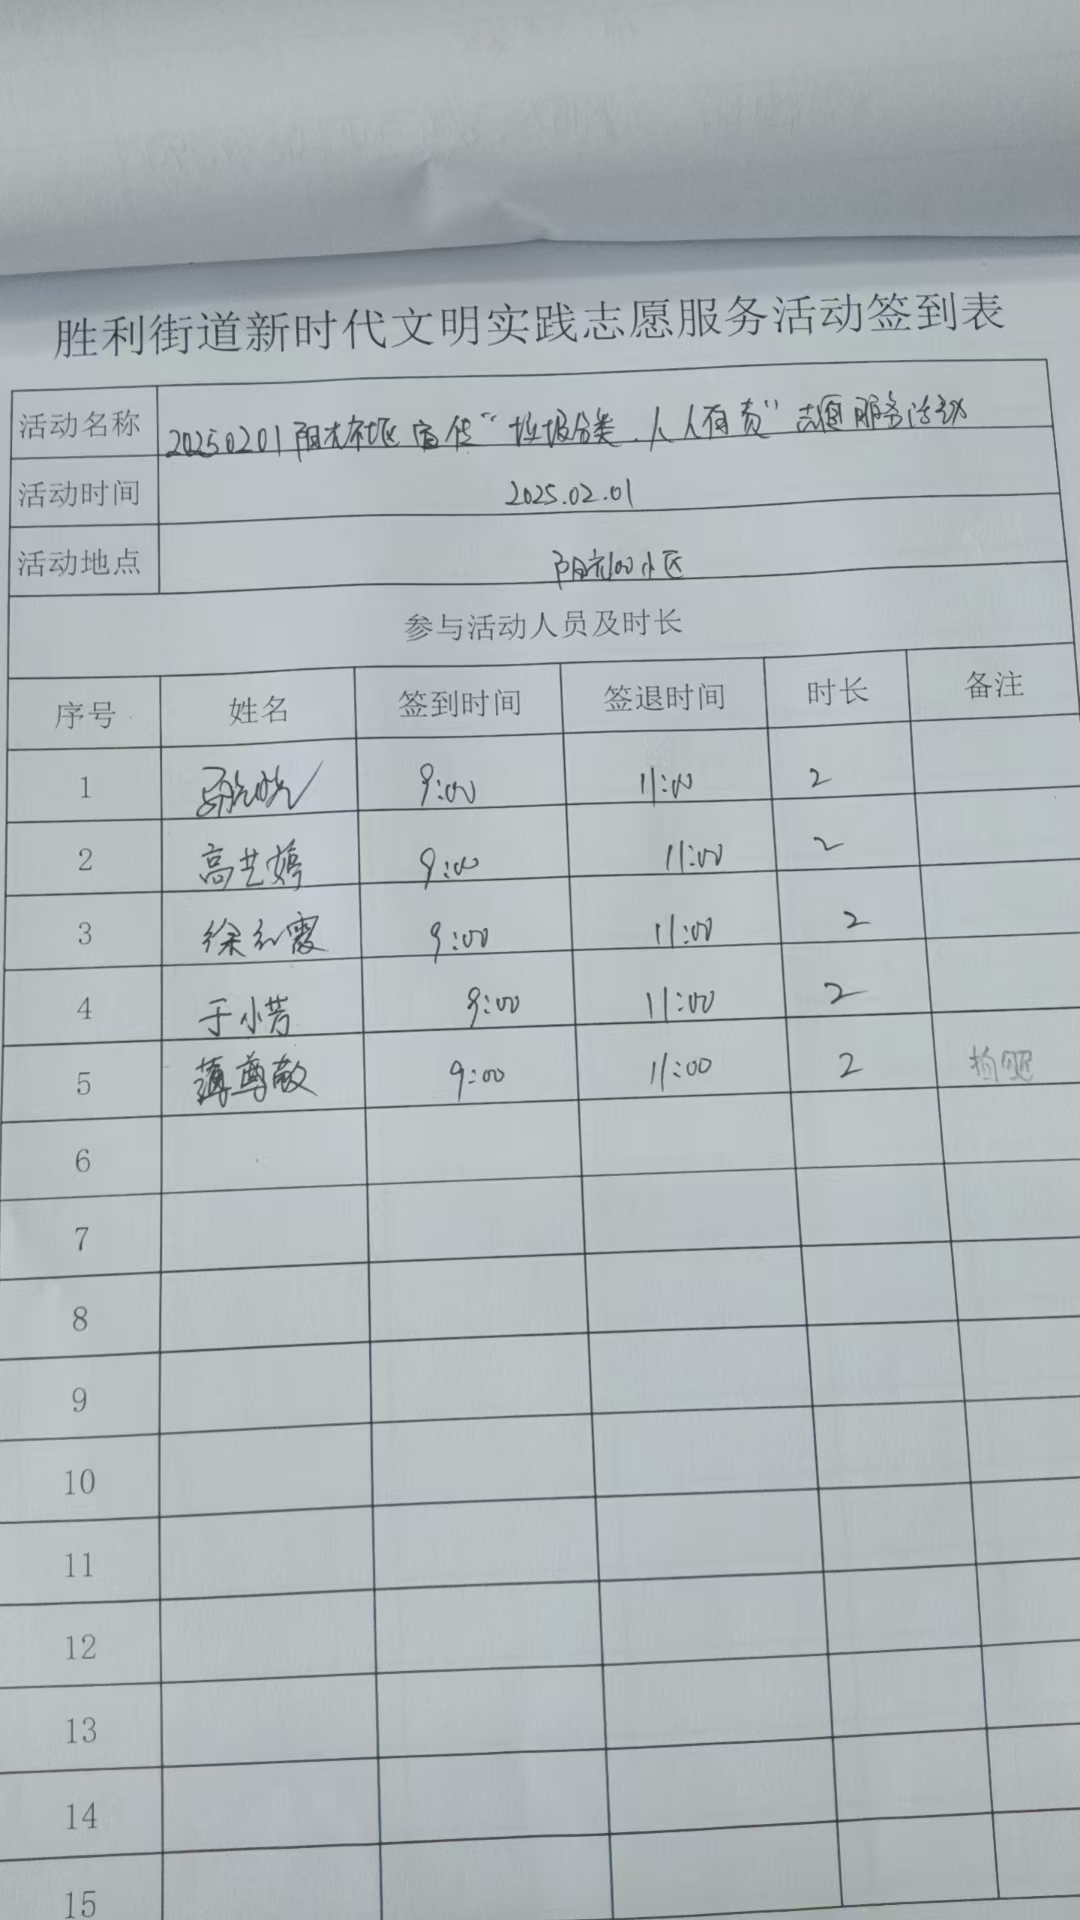 胜利街道新时代文明实践志愿服务活动签到表
活动名称 20250201阳光社区宣传“垃圾分类.人人有责”志愿服务活动
活动时间 2025.02.01
活动地点 阳光100小区
参与活动人员及时长
序号 姓名 签到时间 签退时间 时长 备注
1 9:00 11:00 2
2 高艺婷 9:00 11:00 2
3 徐红霞 9:00 11:00 2
4 于小芳 9:00 11:00 2
5 薄尊敬 9:00 11:00 2
6
7
8
9
10
11
12
13
14
15